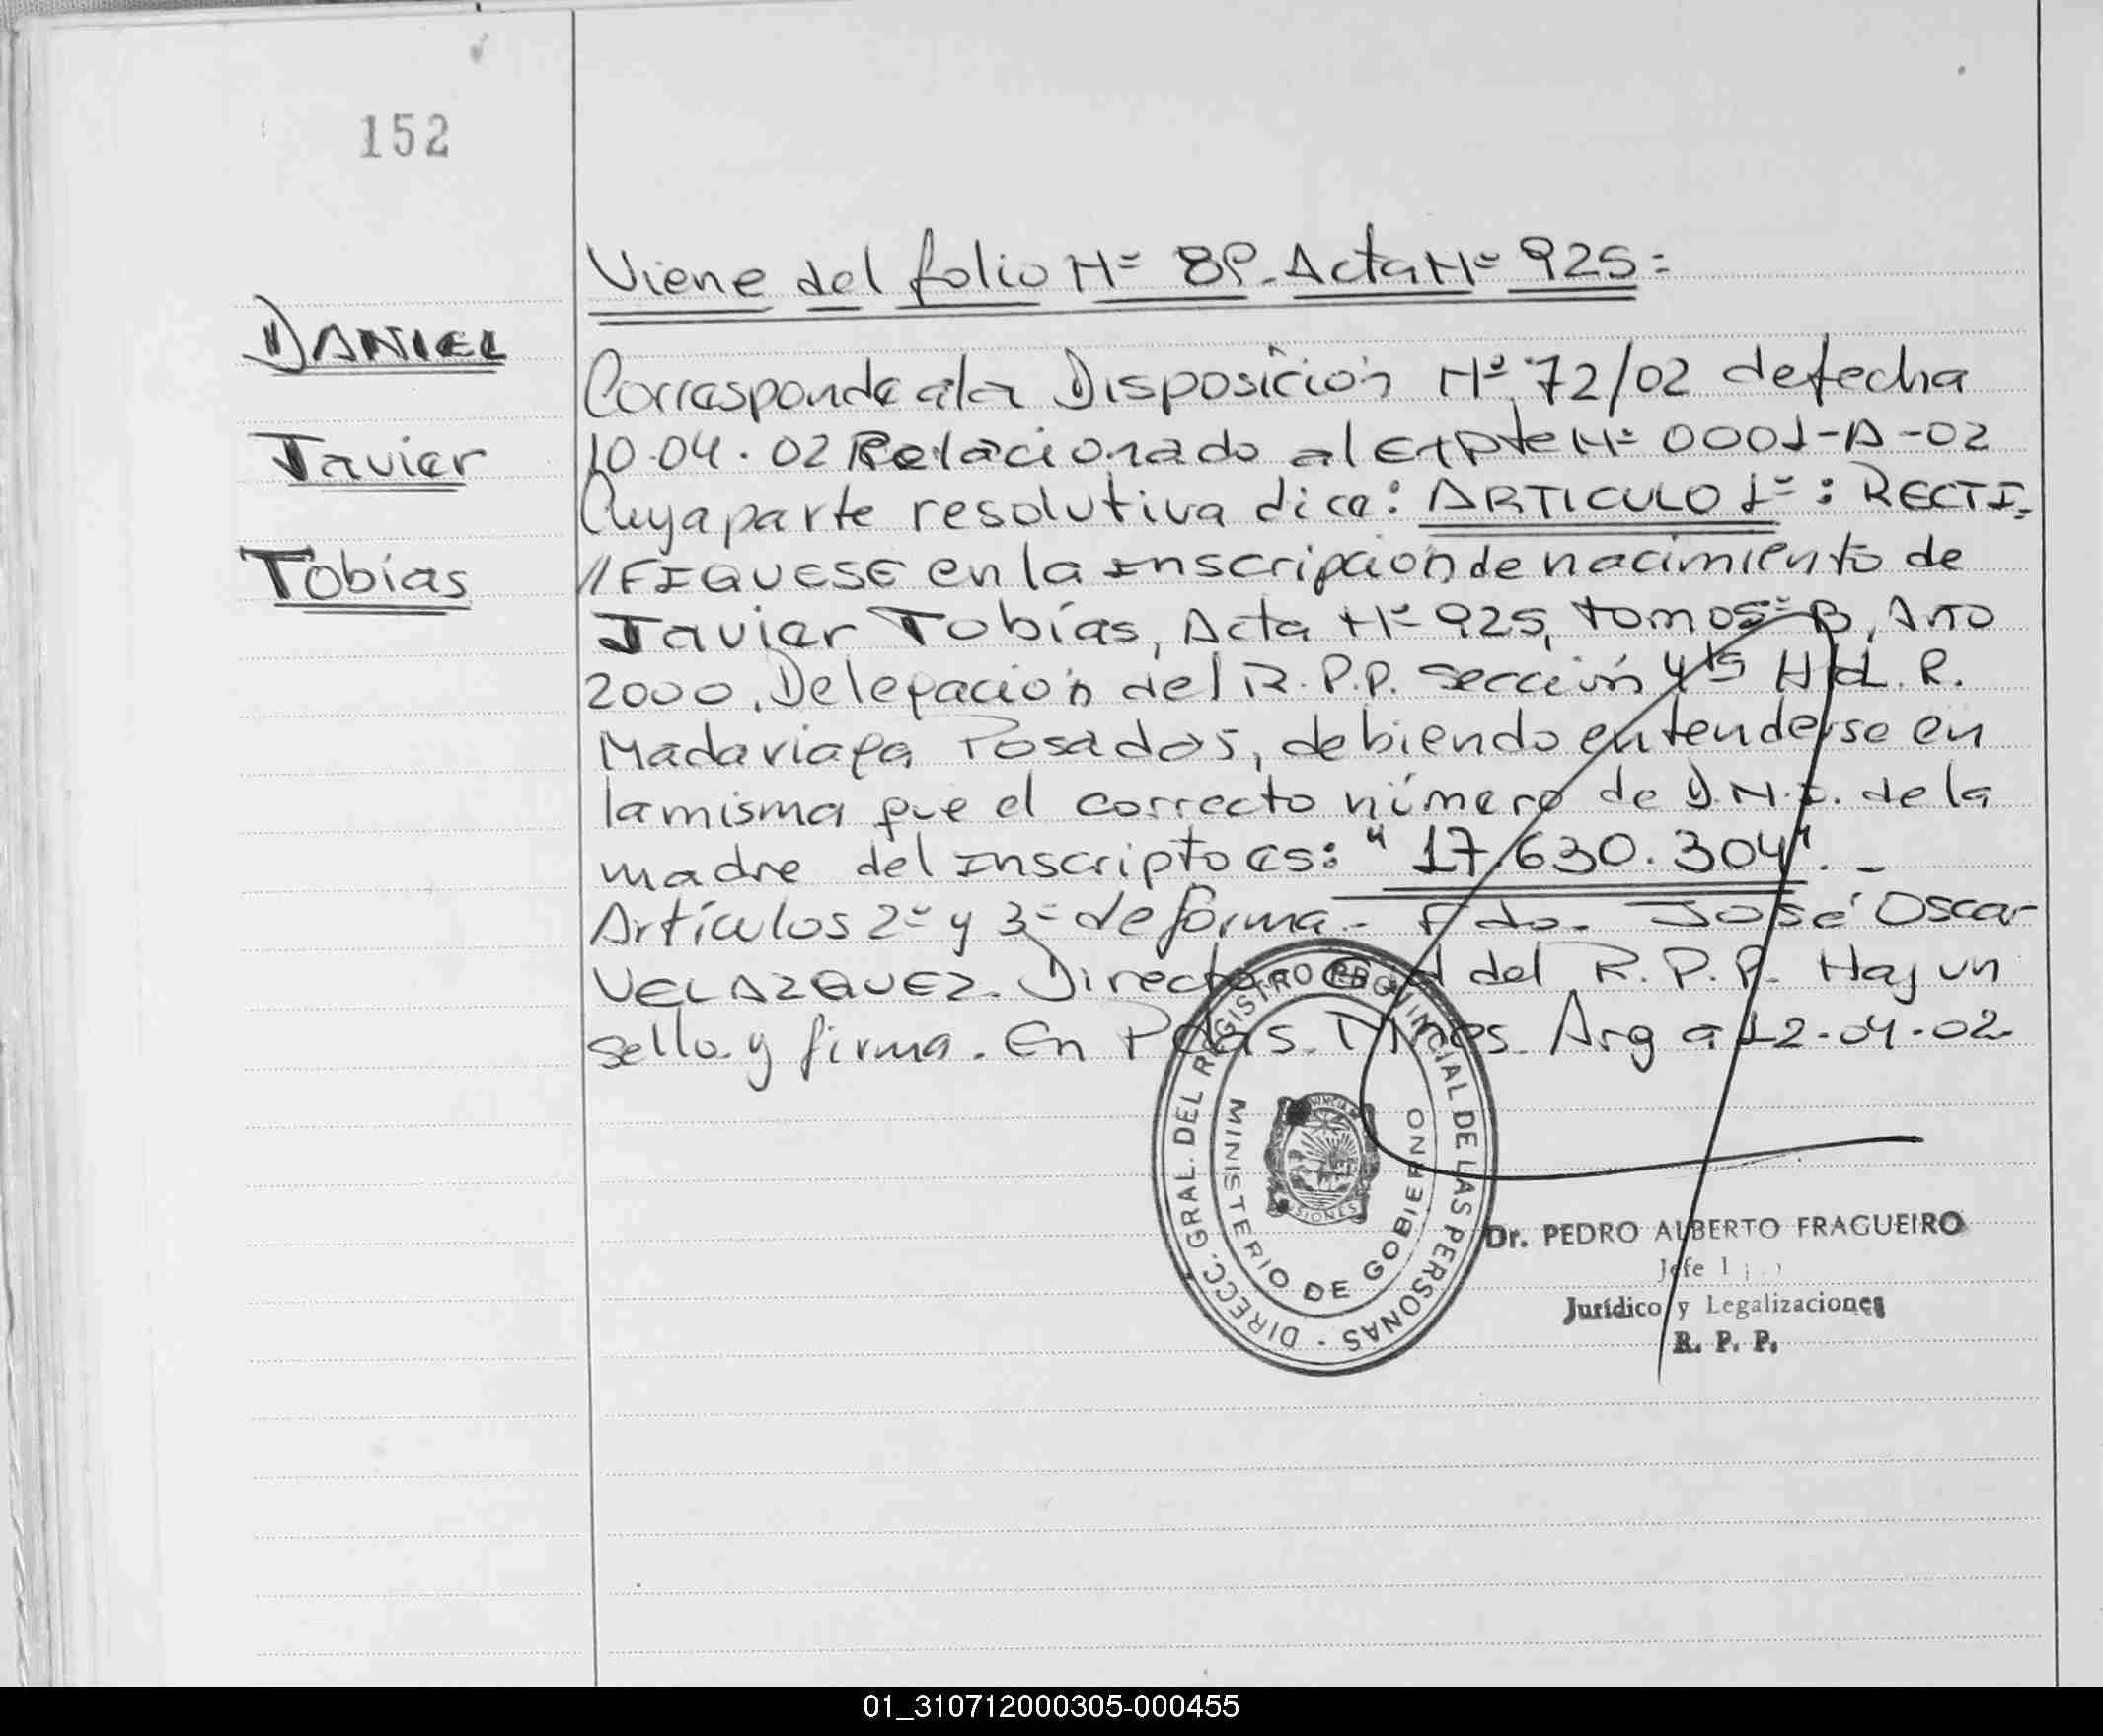 152
Viene del folio Nº 89. Acta Nº 925:
DANIEL
Javier
Tobías
Corresponde a la Disposición Nº 72/02 de fecha
10.04.02 Relacionado al Expte Nº 0001-A-02
Cuya parte resolutiva dice: ARTICULO 1º: RECTI-
//FIQUESE en la Inscripción de nacimiento de
Javier Tobías, Acta Nº 925, tomo 5º B, Año
2000, Delegación del R.P.P. Sección 4ta H/d. R.
Madariaga Posadas, debiendo entenderse en
la misma que el correcto número de D.N.I. de la
madre del Inscripto es: "17.630.304".-
Artículos 2º y 3º de forma.- Fdo. José Oscar
VELAZQUEZ. Director Gral del R.P.P. Hay un
sello y firma. En Pdas. Mnes. Arg a 12-04-02
DIRECC. GRAL. DEL REGISTRO PROVINCIAL DE LAS PERSONAS -
MINISTERIO DE GOBIERNO
MISIONES
Dr. PEDRO ALBERTO FRAGUEIRO
Jefe
Jurídico y Legalizaciones
R. P. P.
01_310712000305-000455